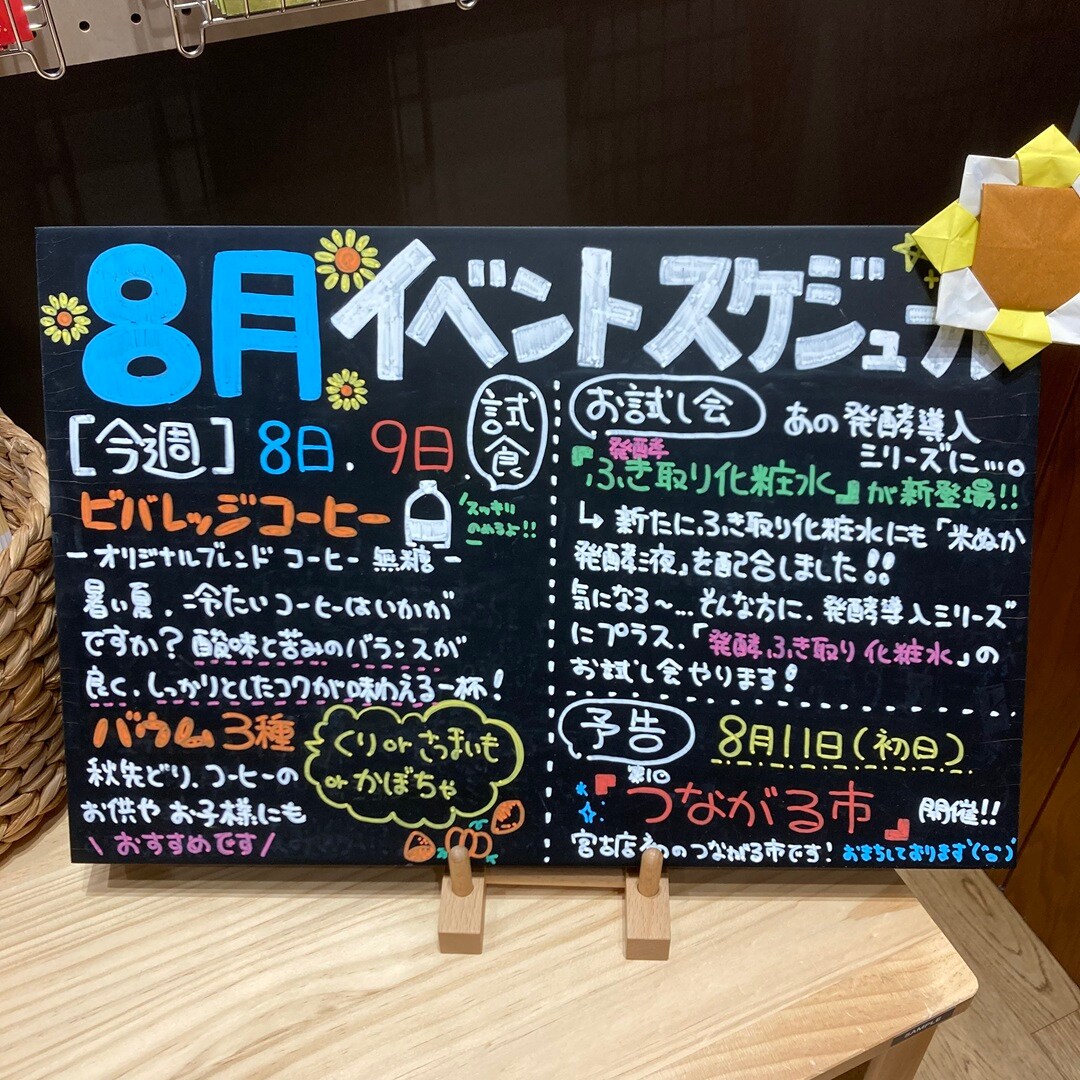 8月 イベントスケジュール
[今週] 8日. 9日
試食
ビバレッジコーヒー
スッキリ
のめるよ!!
ーオリジナルブレンド コーヒー 無糖ー
暑い夏、冷たいコーヒーはいかが
ですか? 酸味と苦みのバランスが
良く、しっかりとしたコクが味わえる一杯!
バウム3種
くり or さつまいも
or かぼちゃ
秋先どり、コーヒーの
お供や お子様にも
\ おすすめです /
お試し会
あの 発酵導入
シリーズに…。
発酵
『ふき取り化粧水』が新登場!!
↳ 新たにふき取り化粧水にも「米ぬか
発酵液」を配合しました!!
気になる〜… そんな方に、発酵導入シリーズ
にプラス、「発酵ふき取り化粧水」の
お試し会やります!
予告
8月11日(初日)
第10
『つながる市』 開催!!
宮古店初のつながる市です! おまちしております
SAMPLE